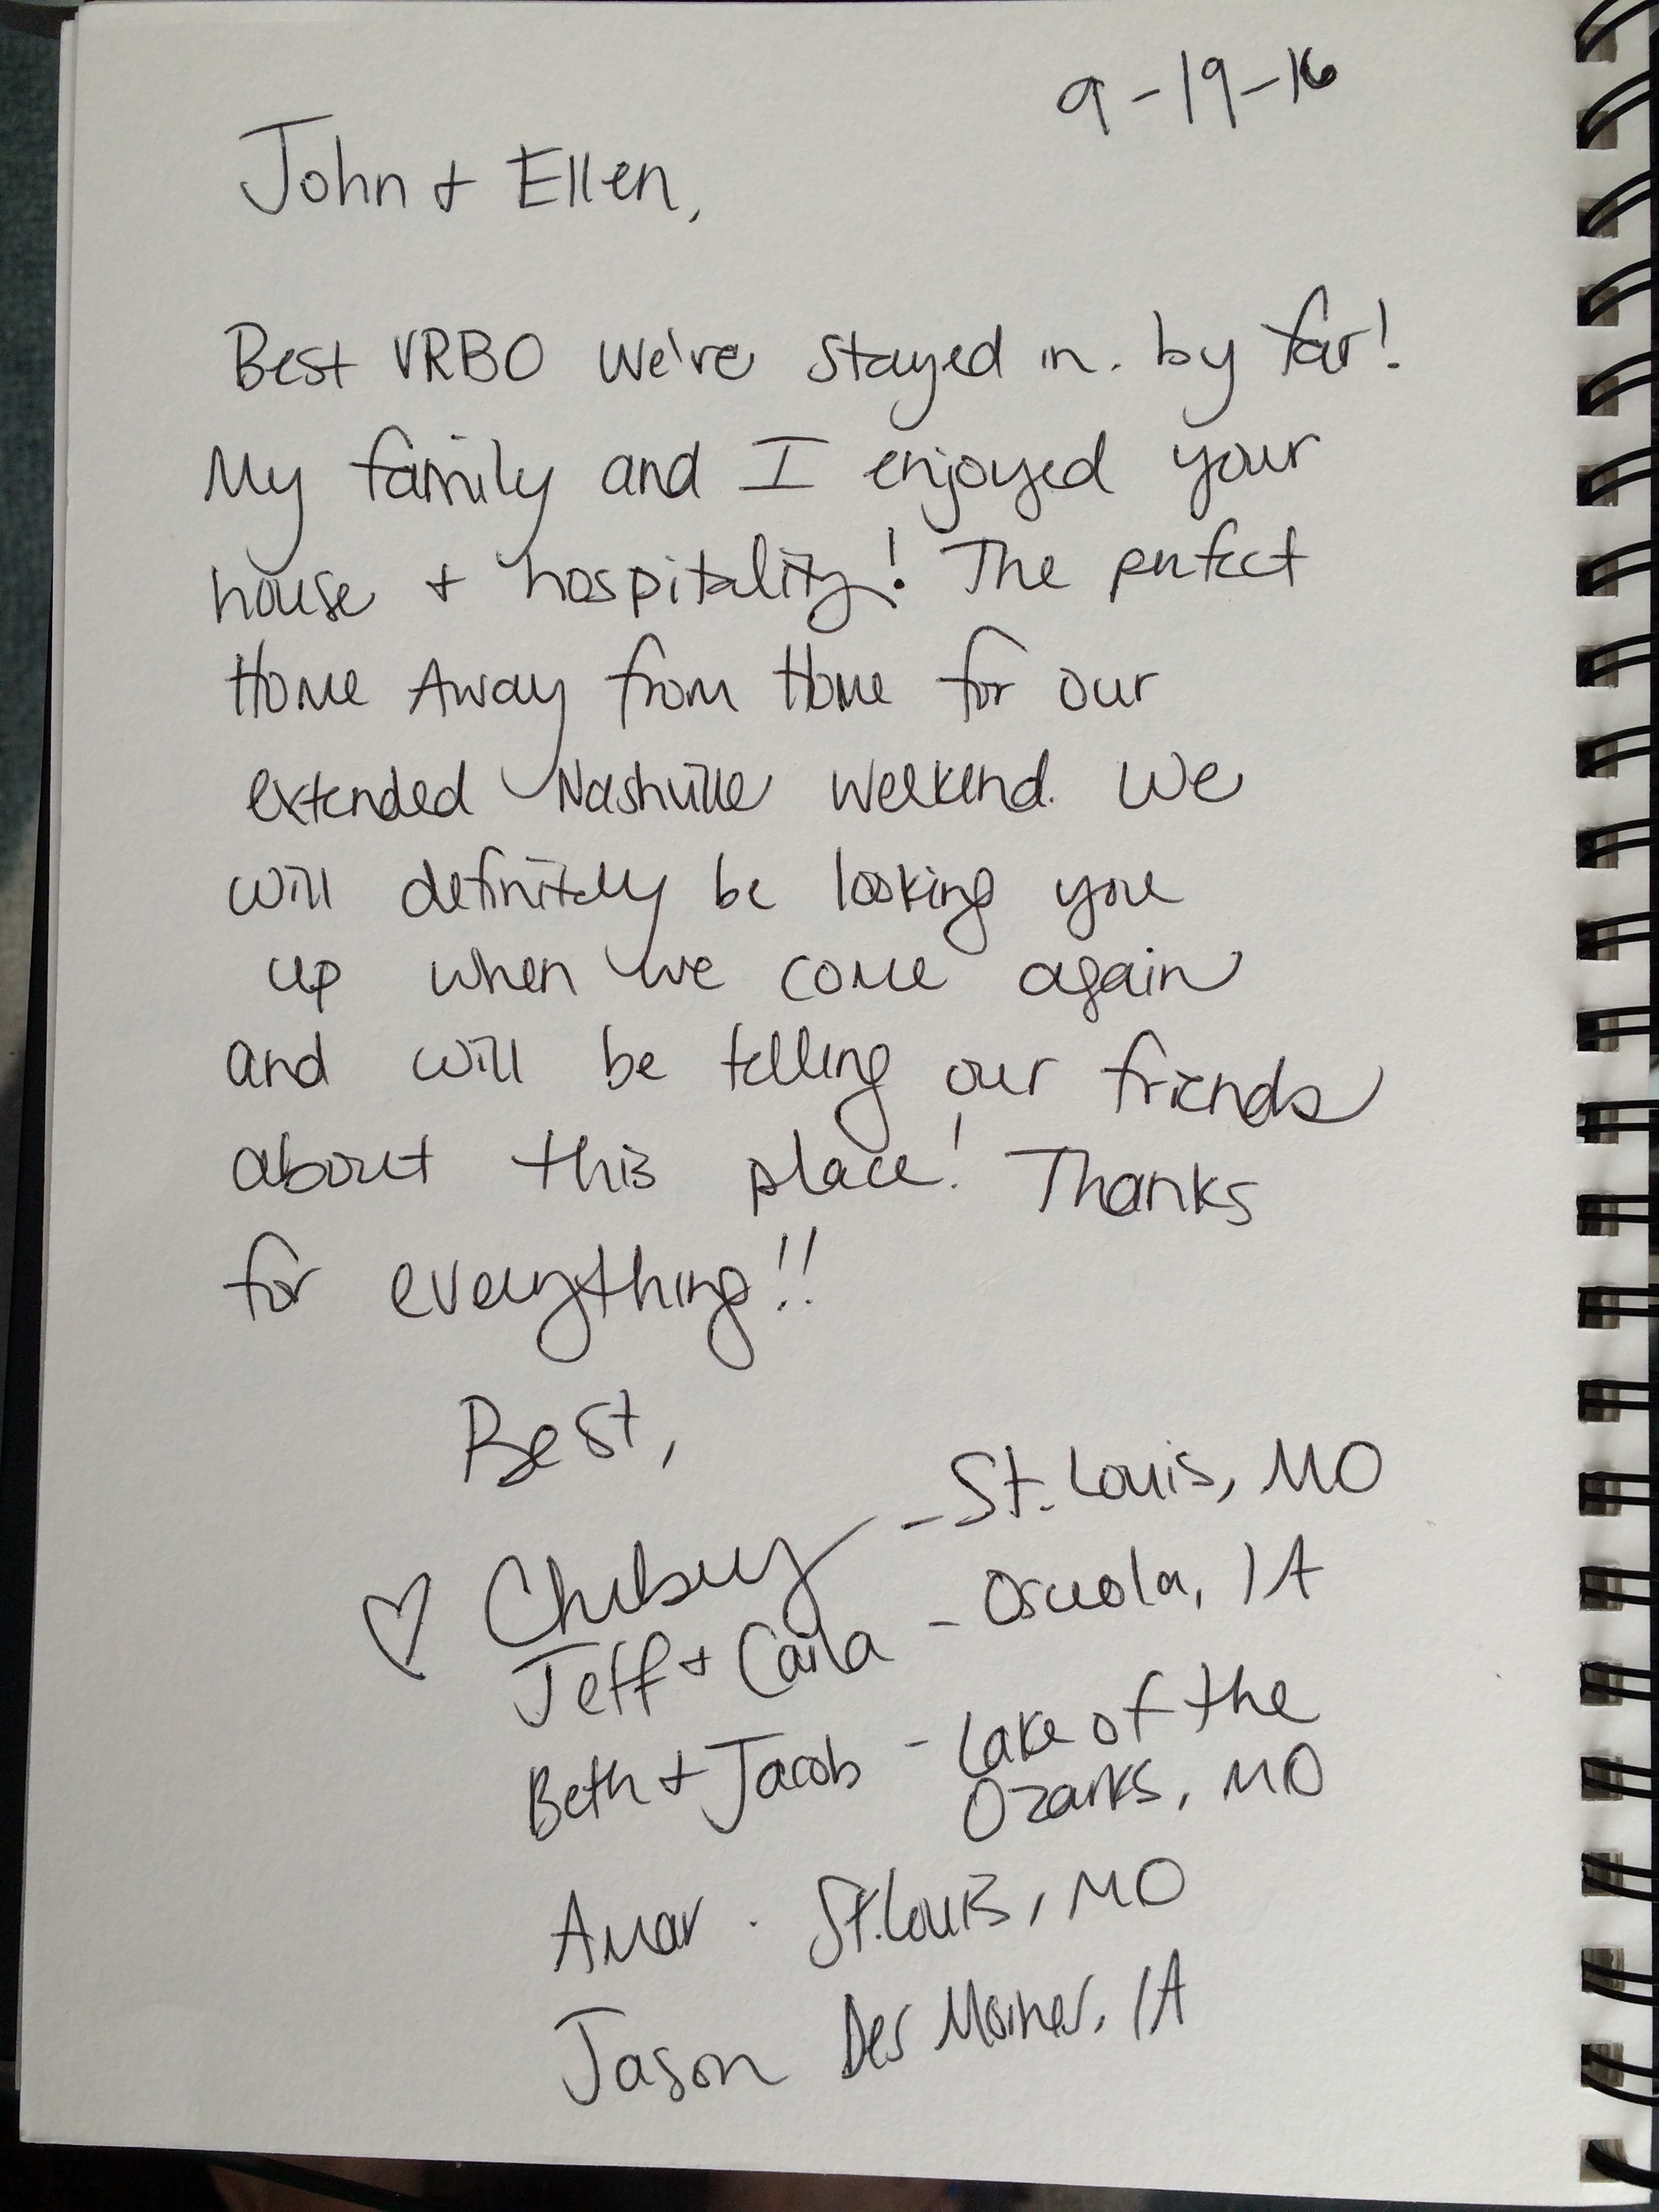 9-19-16
John + Ellen,
Best VRBO we've stayed in. by far!
My family and I enjoyed your
house + hospitality! The perfect
Home Away from Home for our
extended Nashville weekend. We
will definitely be looking you
up when we come again
and will be telling our friends
about this place! Thanks
for everything!!
Best,
♡ Chelsey - St. Louis, MO
Jeff + Carla - Osceola, IA
Beth + Jacob - Lake of the
Ozarks, MO
Amar - St. Louis, MO
Jason Des Moines, IA